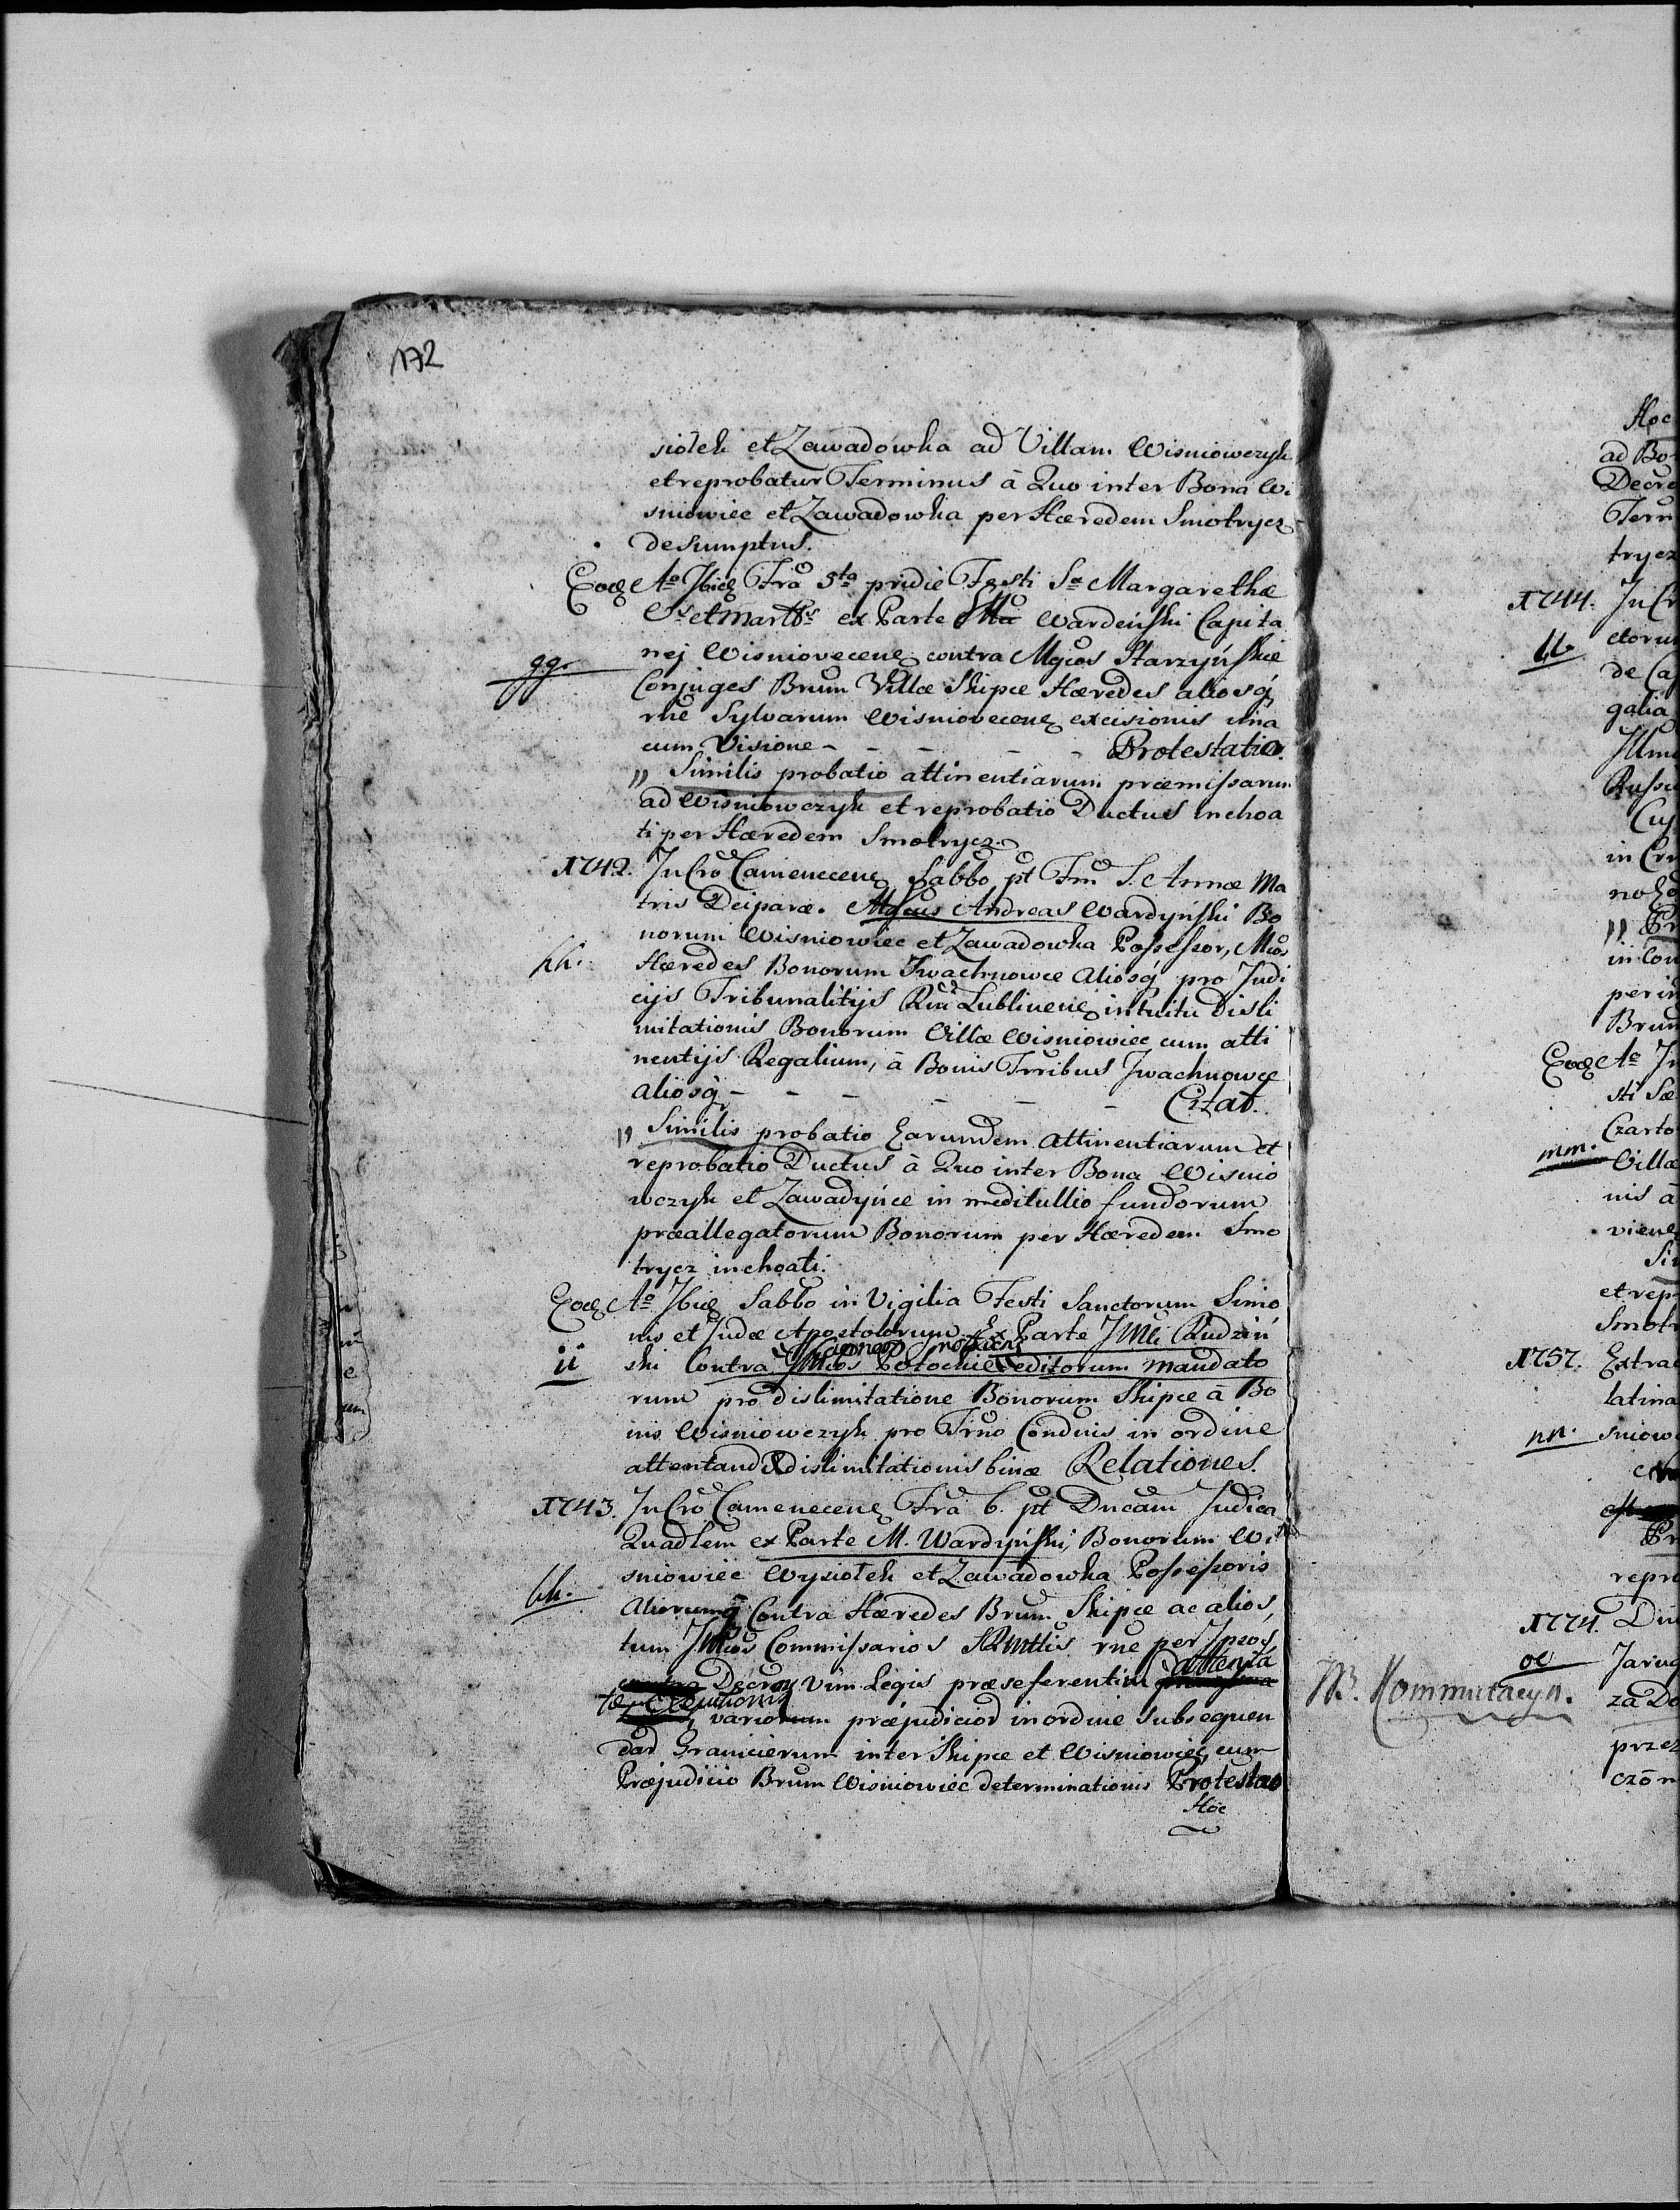 172
siołek et Zawadowka ad Villam Wisniowczyk
et reprobatur Terminus à Quo inter Bona Wi
sniowiec et Zawadowka per Hæredem Smotrycz
desumptus.
Eod Aº Ibid Fra 5ta pridie Festi Sæ Margarethæ
Vs et Martis ex Parte Wardeński Capita
nej Wisniovecens contra Mgcos Starzyńskie
gg.
Conjuges Brum Villæ Skipce Hæredes aliosq
rne Sylvarum Wisniovecens excisionis una
cum Visione - - - - - Protestatio.
„ Similis probatio attinentiarum præmissarum
ad Wisniowczyk et reprobatio Ductus inchoa
ti per Hæredem Smotrycz.
1742. In Cro Camenecens Sabbo pt Fm S. Annæ Ma
tris Deiparæ. Mgcus Andreas Wardyński Bo
norum Wisniowiec et Zawadowka Possessor, Mcos
hh.
Hæredes Bonorum Iwachnowce aliosq pro Judi
cijs Tribunalitijs Rni Lublinens intuitu Disli
mitationis Bonorum Villæ Wisniowiec cum atti
nentijs Regalium, à Bonis Trribus Iwachnowce
aliosq - - - - - - Citat.
„ Similis probatio Earundem Attinentiarum et
reprobatio Ductus à Quo inter Bona Wisnio
wczyk et Zawadyńce in meditullio fundorum
præallegatorum Bonorum per Hæredem Smo
trycz inchoati.
Eod Aº Ibid Sabbo in Vigilia Festi Sanctorum Simo
nis et Judæ Apostolorum Ex Parte Rudziń
ii
ski Contra Potockie editorum mandato
rum pro dislimitatione Bonorum Skipce à Bo
nis Wisniowczyk pro Trno Conduis in ordine
attentand dislimitationis binæ Relationes.
1743. In Cro Camenecens Fra 6. pt Dncam Judica
Quadlem ex Parte M. Wardyński, Bonorum Wi
sniowiec Wysiołek et Zawadowka Possessoris
kk.
Aliorumq Contra Hæredes Brum Skipce ac alios,
tum Commissarios rne per Ipsos,
attenta
Decror Vim Legis præseferentium
Executionis
variorum præjudicior in ordine subsequen
dar Granicierum inter Skipce et Wisniowiec, cum
Præjudicio Brum Wisniowiec determinationis Protestao
Hoc
Hoc
ad Bo
Decre
Term
trycz
1744. In Cr
ctorum
ll.
de Ca
galia
Illm
Russi
Cuj
in Cr
no Ed
„ Pr
in Con
per in
Brum
Eod Aº In
sti Sæ
Czarto
mm.
Villæ
nis a
viene
Si
et rep
Smotr
1757. Extra
latina
nn.
sniow
Pr
repro
1774. Dni
oo
Jarug
N. Kommutacya.
za Do
przez
czon